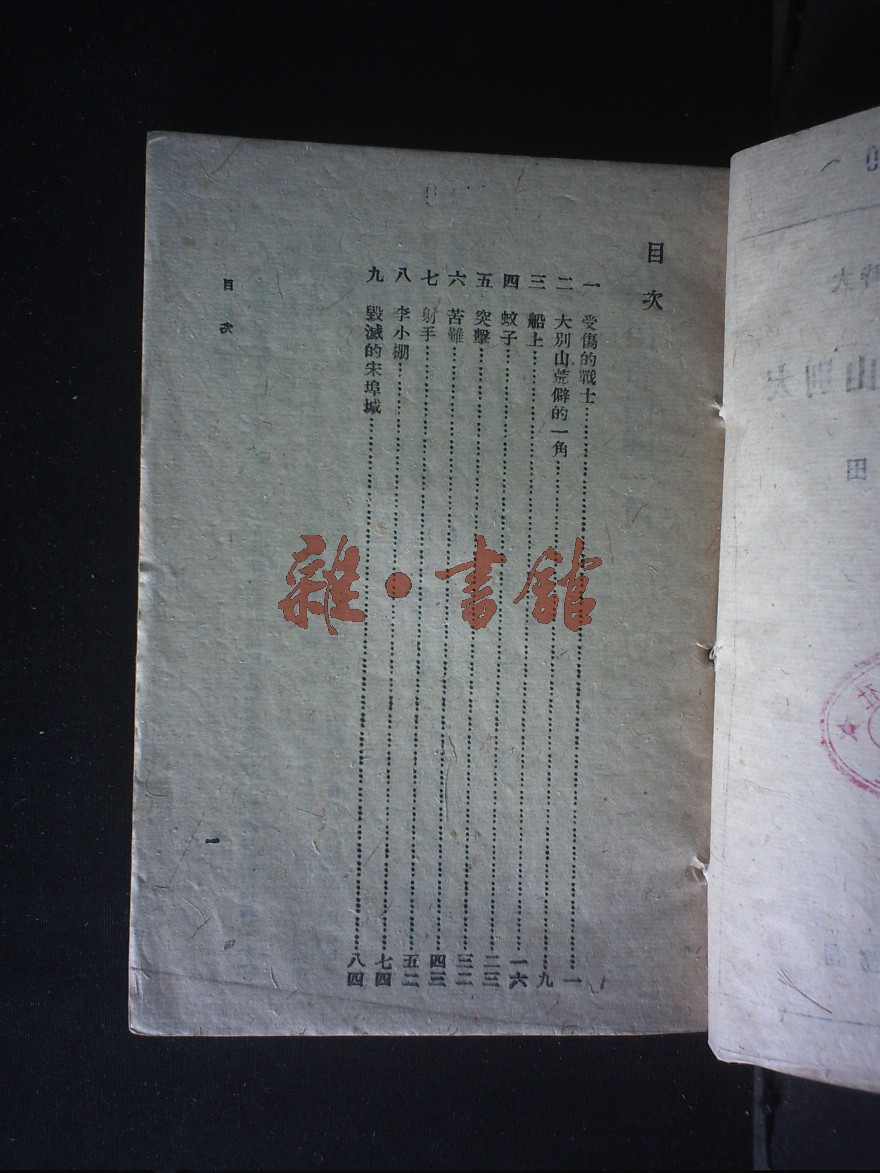 目次
一 受傷的戰士……一
二 大別山荒僻的一角……九
三 船上……一六
四 蚊子……二三
五 突擊……三二
六 苦難……四三
七 射手……五二
八 李小棚……七四
九 毀滅的宋埠城……八四
目次
一
雜·書館